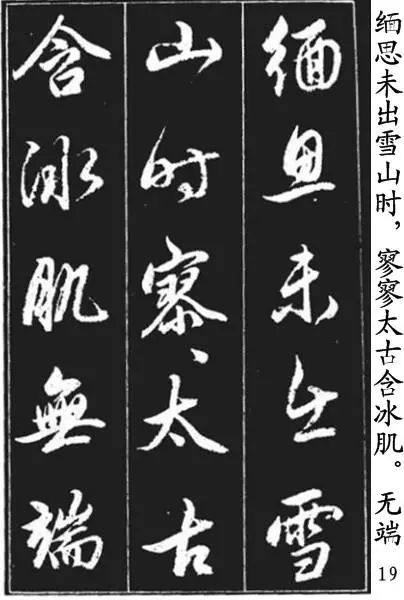 缅思未出雪
山时寥〻太古
含冰肌無端
缅思未出雪山时，寥寥太古含冰肌。无端
19